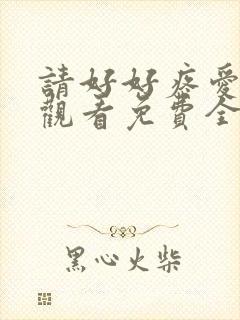 請好好疼愛
觀看免費全
黑心火柴